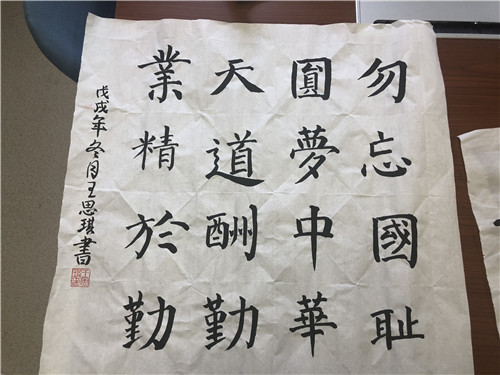 勿忘國耻
圓夢中華
天道酬勤
業精於勤
戊戌年冬月王思琪書